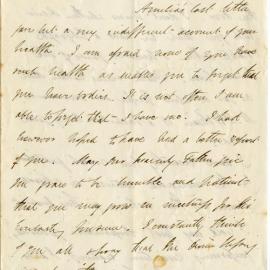 Amelia's last letter
gave but a very indifferent account of your
health. I am afraid none of you have
such health as makes you to forget that
you have bodies. It is not often I am
able to forget that I have one. I had
however hoped to have had a better report
of you. May our heavenly Father give
you grace to be humble and patient
that you may grow in meetness for the
I constantly think
of you all & pray that the